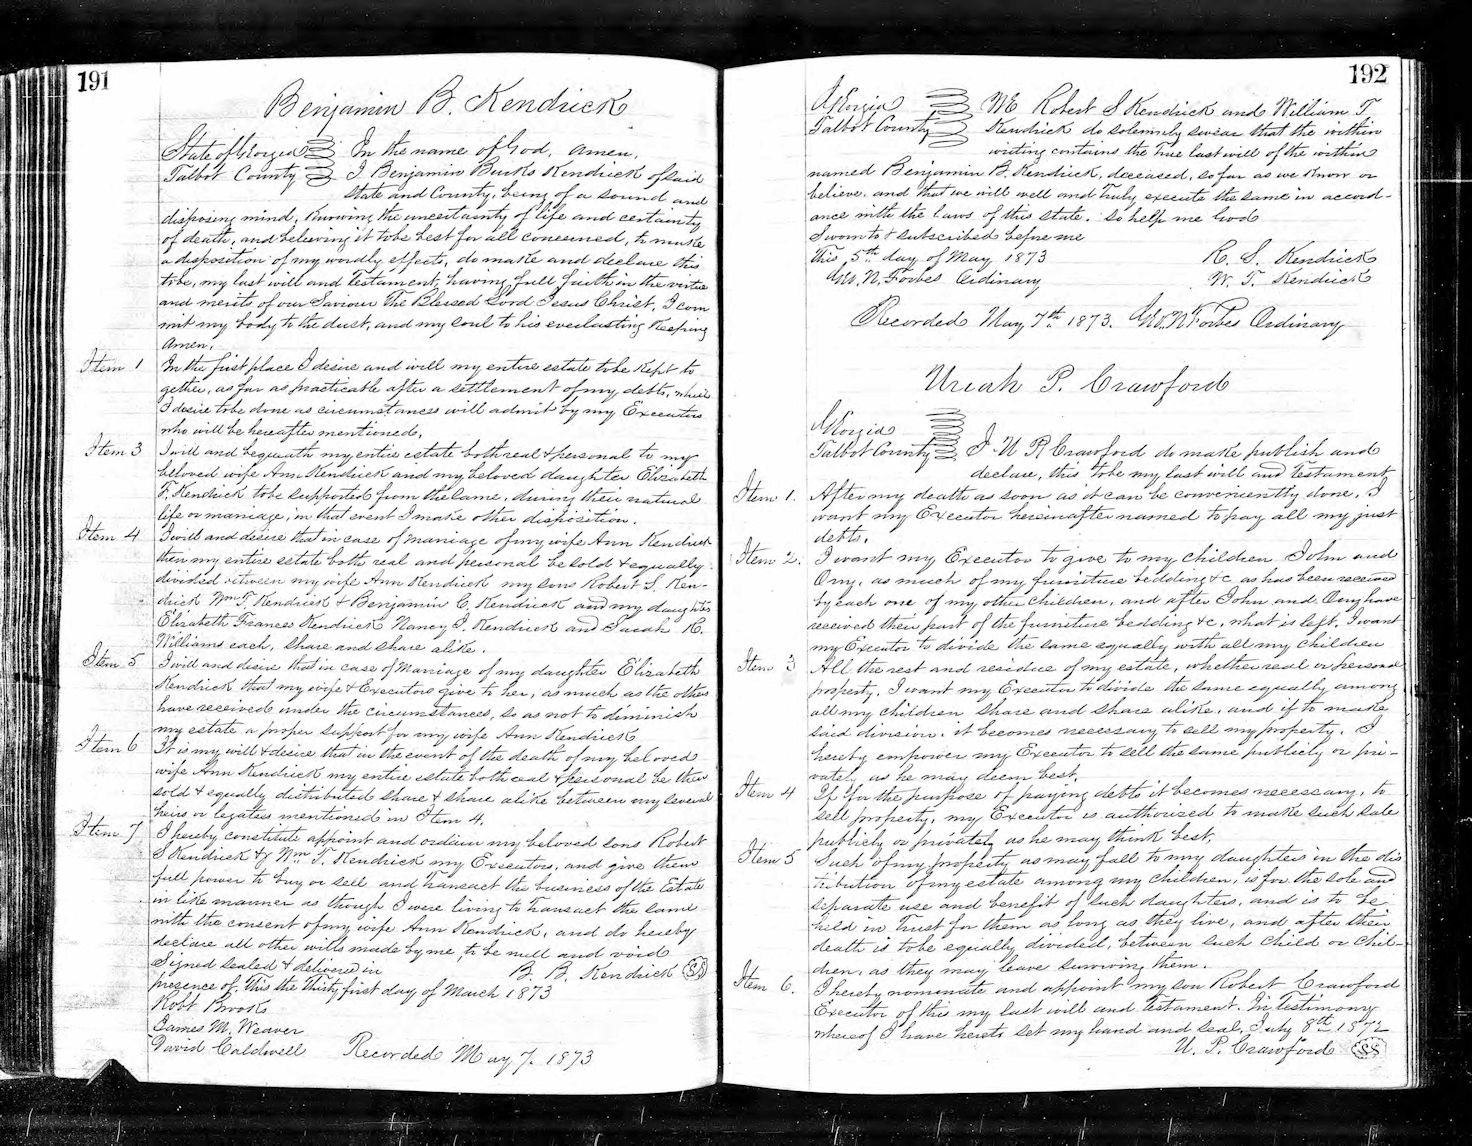 191
Benjamin B. Kendrick
State of Georgia In the name of God, amen.
Talbot County I Benjamin Burks Kendrick of said
State and County, being of a sound and
disposing mind, knowing the uncertainty of life and certainty
of death, and believing it to be best for all concerned, to make
a disposition of my wordly effects, do make and declare this
to be, my last will and Testament, having full faith in the virtue
and merits of our Saviour The Blessed Lord Jesus Christ, I com
mit my body to the dust, and my soul to his everlasting keeping
Amen.
Item 1 In the first place I desire and will my entire estate to be kept to
gether, as far as practicable after a settlement of my debts, which
I desire to be done as circumstances will admit by my Executors
who will be hereafter mentioned.
Item 3 I will and bequeath my entire estate both real & personal to my
beloved wife Ann Kendrick and my beloved daughter Elizabeth
F. Kendrick to be supported from the same, during their natural
life or marriage, in that event I make other disposition.
Item 4 I will and desire that in case of marriage of my wife Ann Kendrick
then my entire estate both real and personal be sold & equally
divided between my wife Ann Kendrick my sons Robert S. Ken-
drick Wm T. Kendrick & Benjamin C. Kendrick and my daughters
Elizabeth Frances Kendrick Nancy J. Kendrick and Sarah K.
Williams each, share and share alike.
Item 5 I will and desire that in case of Marriage of my daughter Elizabeth
Kendrick that my wife & Executors give to her, as much as the others
have received under the circumstances, so as not to diminish
my estate a proper support for my wife Ann Kendrick
Item 6 It is my will & desire that in the event of the death of my beloved
wife Ann Kendrick my entire estate both real & personal be then
sold & equally distributed share & share alike between my several
heirs or legatees mentioned in Item 4.
Item 7 I hereby constitute appoint and ordain my beloved sons Robert
S Kendrick & Wm T. Kendrick my Executors, and give them
full power to buy or sell and Transact the business of the Estate
in like manner as though I were living to Transact the same
with the consent of my wife Ann Kendrick, and do hereby
declare all other wills made by me, to be null and void
Signed sealed & delivered in B. B. Kendrick
presence of, this the Thirty first day of March 1873
Robt Brooks
James M, Weaver
David Caldwell Recorded May 7. 1873
192
Georgia We Robert S Kendrick and William T
Talbot County Kendrick do solemnly swear that the within
writing contains the True last will of the within
named Benjamin B. Kendrick, deceased, so far as we know or
believe, and that we will well and Truly execute the same in accord-
ance with the laws of this state. So help me God
Sworn to & subscribed before me
This, 5th day of May 1873 R. S. Kendrick
Geo. N. Forbes Ordinary W. T. Kendrick
Recorded May 7th 1873. Geo. N Forbes Ordinary
Uriah P. Crawford
Georgia
Talbot County I U P. Crawford do make publish and
declare, this to be my last will and testament
Item 1. After my death as soon as it can be conveniently done, I
want my Executor hereinafter named to pay all my just
debts.
Item 2. I want my Executor to give to my children John and
Ony, as much of my furniture bedding &c as has been received
by each one of my other children, and after John and Ony have
received their part of the furniture bedding &c, what is left, I want
my Executor to divide the same equally with all my children
Item 3 All the rest and residue of my estate, whether real or personal
property. I want my Executor to divide the same equally among
all my children share and share alike, and if to make
said division, it becomes necessary to sell my property. I
hereby empower my Executor to sell the same publicly or pri-
vately as he may deem best.
Item 4 If for the purpose of paying debts it becomes necessary, to
sell property, my Executor is authorized to make such sale
publicly or privately as he may think best.
Item 5 Such of my property as may fall to my daughters in the dis
tribution of my estate among my children, is for the sole and
separate use and benefit of such daughters, and is to be
held in Trust for them as long as they live, and after their
death is to be equally divided, between such child or chil-
dren, as they may leave surviving them.
Item 6. I hereby nominate and appoint my son Robert Crawford
Executor of this my last will and Testament. In Testimony
whereof I have hereto set my hand and seal, July 8th 1872
U. P. Crawford